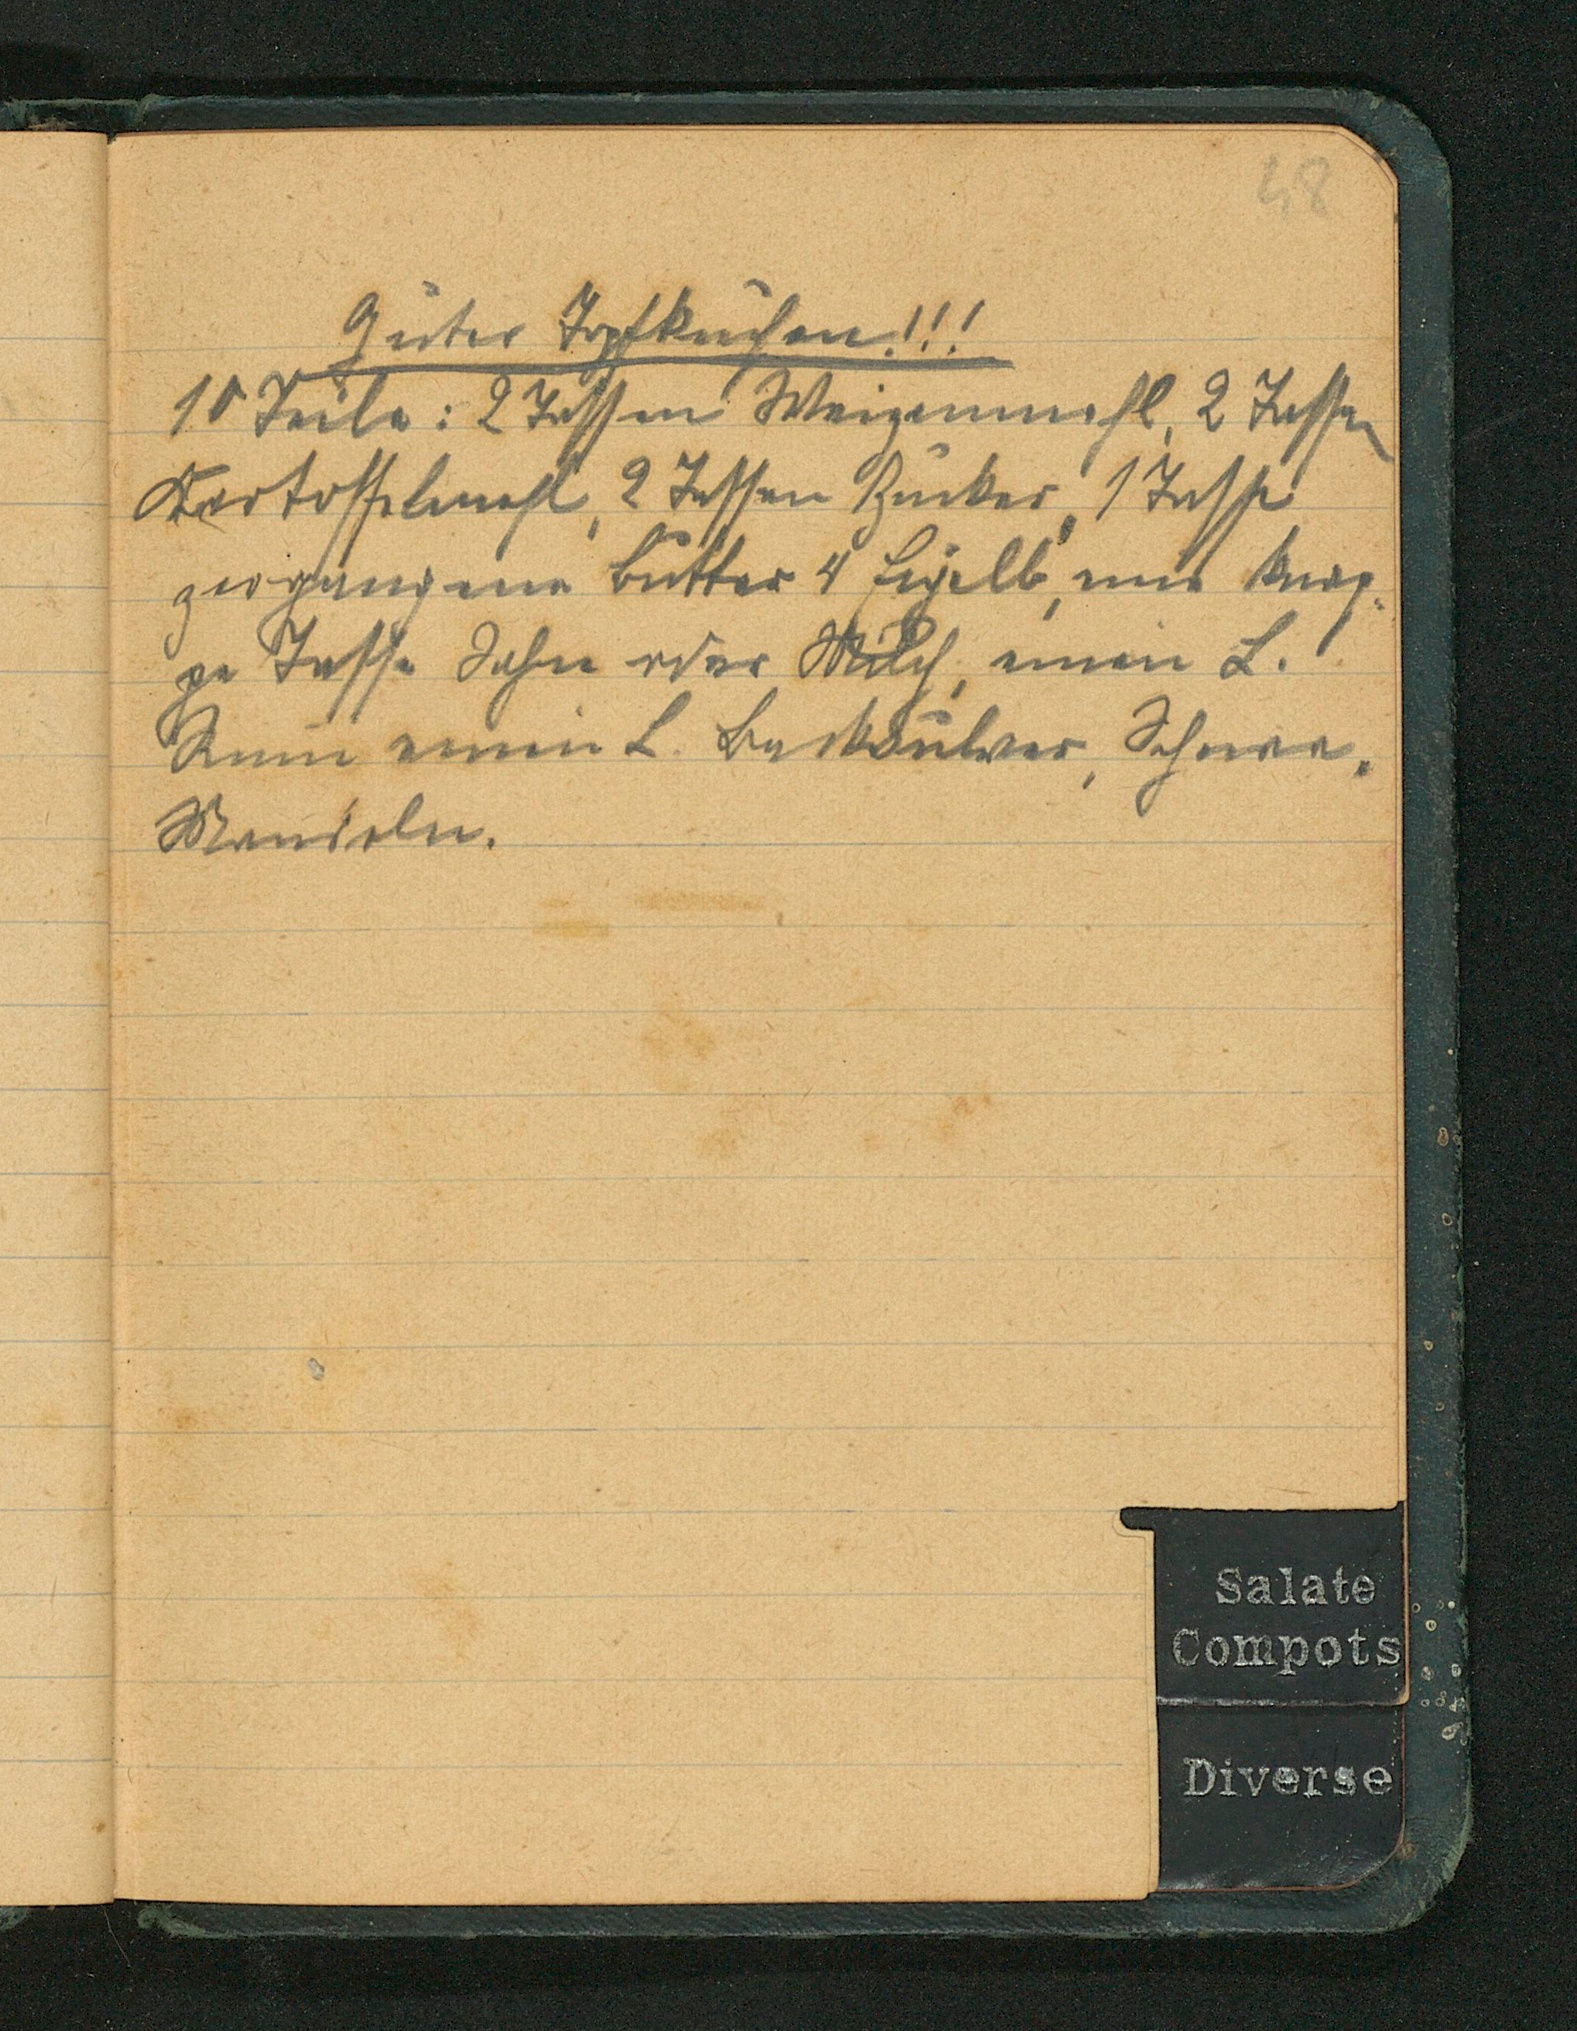 48
Guter Topfkuchen!!!
10 Teile: 2 Tassen Weizenmehl, 2 Tassen
Kartoffelmehl, 2 Tassen Zucker, 1 Tasse
zergangene Butter 4 Eigelb, eine knap-
pe Tasse Sahne oder Milch, einen L.
Rum einen L. Backpulver, Schnee,
Mandeln.
Salate
Compots
Diverse